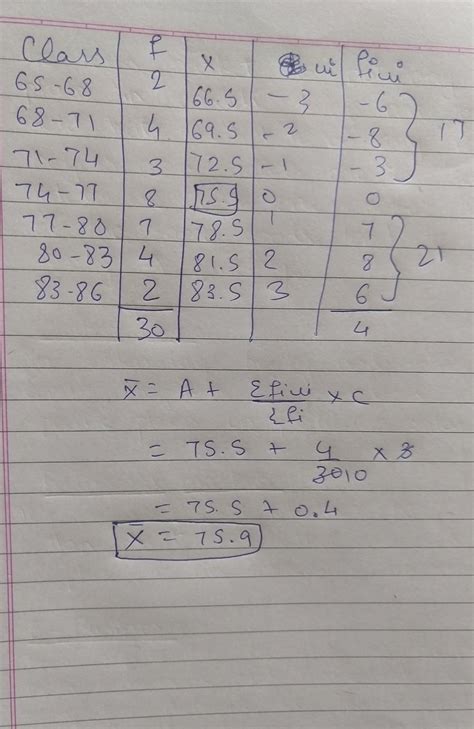 Class f x ui fiui
65-68 2 66.5 -3 -6
68-71 4 69.5 -2 -8 17
71-74 3 72.5 -1 -3
74-77 8 75.5 0 0
77-80 7 78.5 1 7
80-83 4 81.5 2 8 21
83-86 2 83.5 3 6
30 4
x̄ = A + Σfiui/Σfi × C
= 75.5 + 4/3010 × 3
= 75.5 + 0.4
x̄ = 75.9